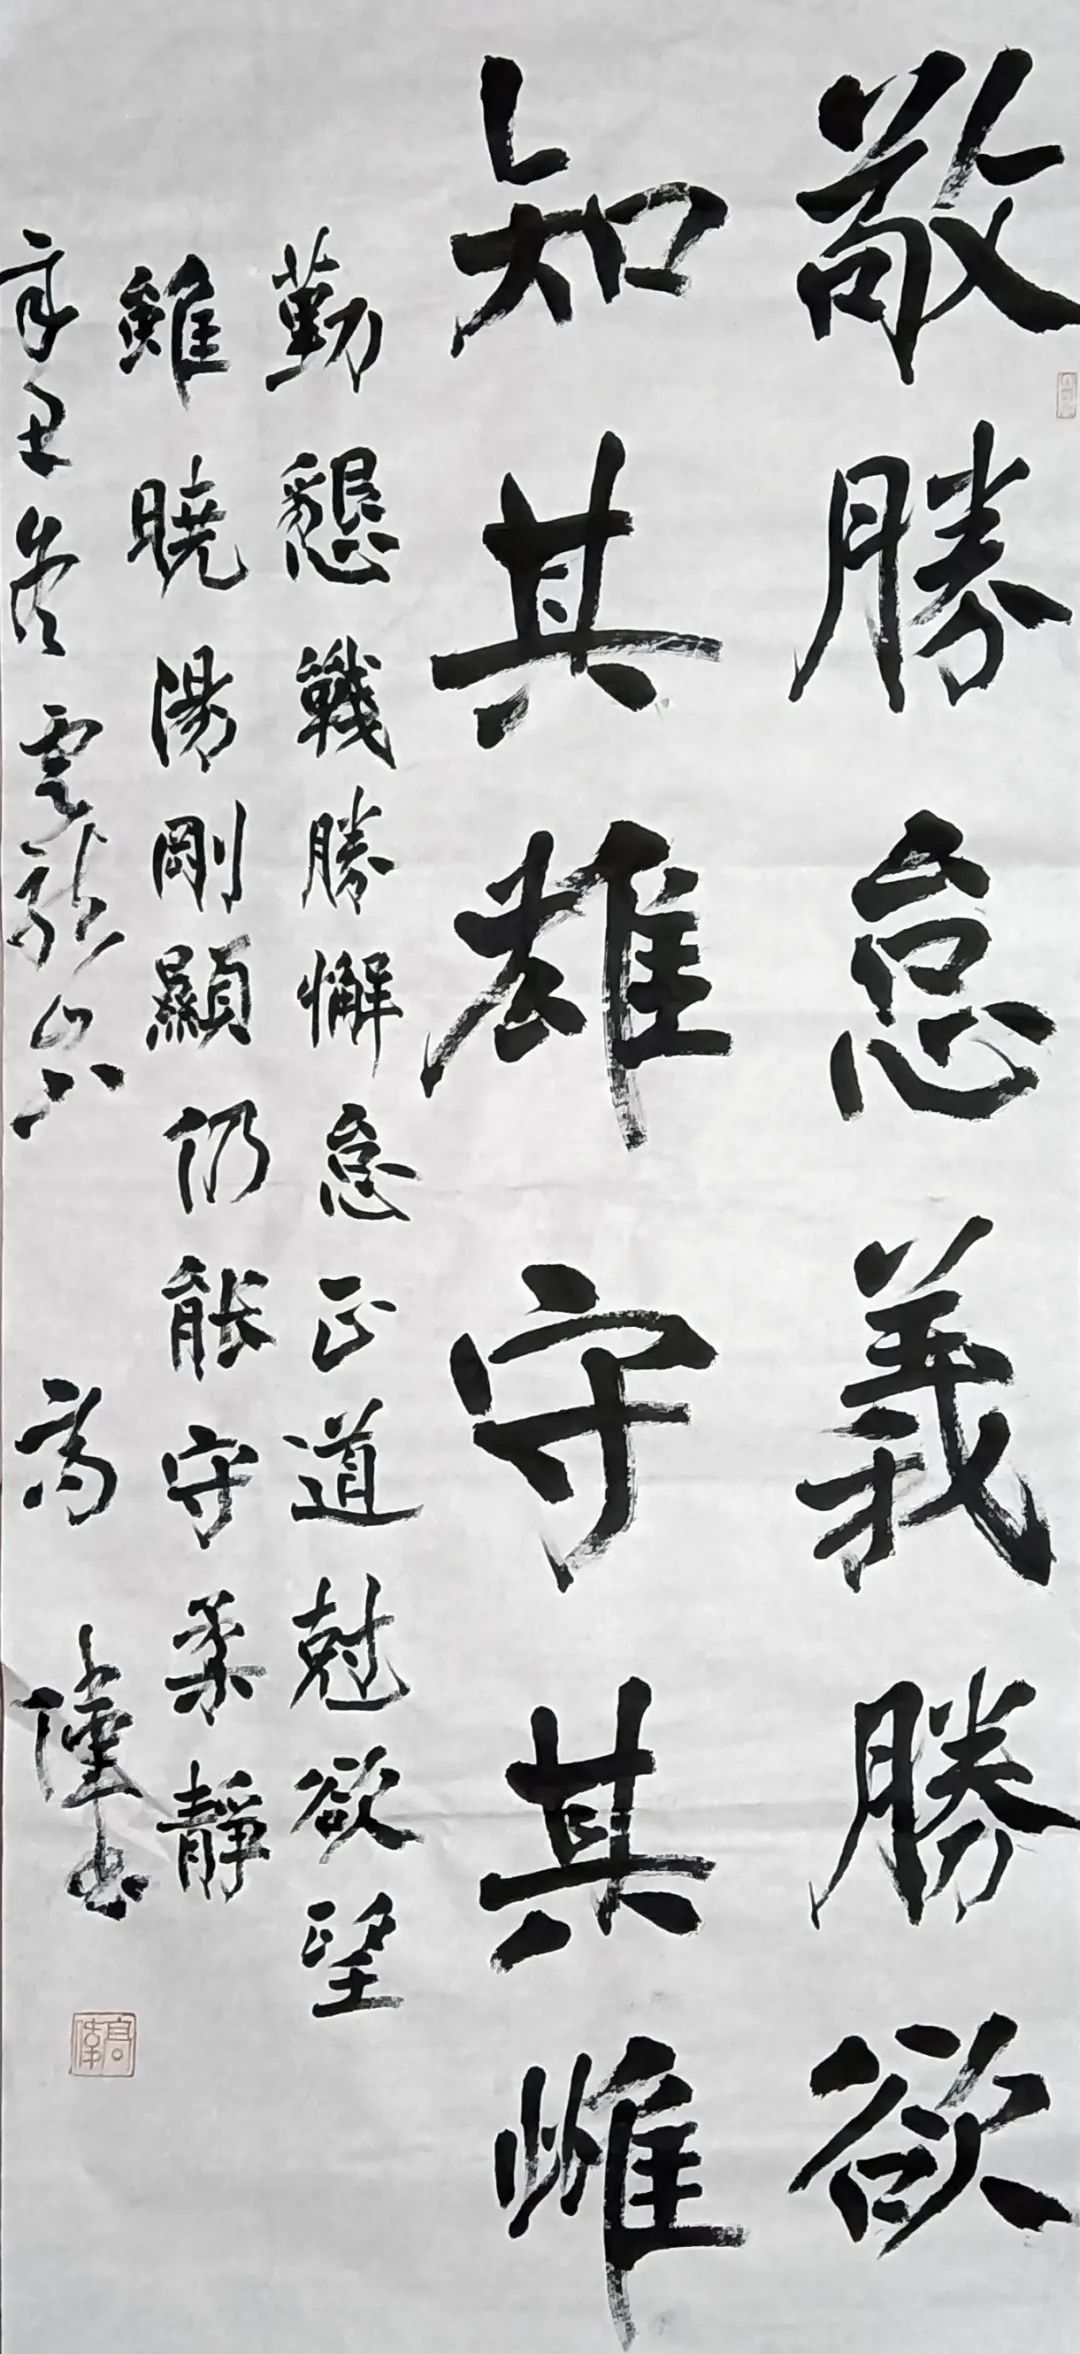 敬勝怠義勝欲
知其雄守其雌
勤懇戰勝懈怠正道尅欲望
雖曉陽剛顯仍能守柔靜
辛丑冬雲龍山下 高偉書
高偉